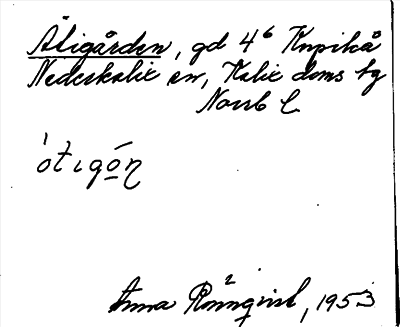 Åtigården, gd 4⁶ Knpikå
Nederkalix sn, Kalix doms hg
Norrb l
ò́tιgo̲n̥
Anna Rönnqvist, 1953